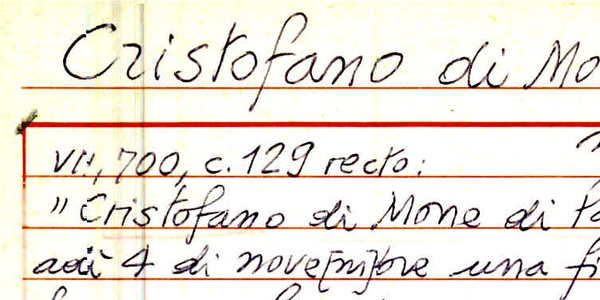 Cristofano di Mo
VII, 700, c. 129 recto:
"Cristofano di Mone di Pa
adì 4 di nove[m]bre una fi